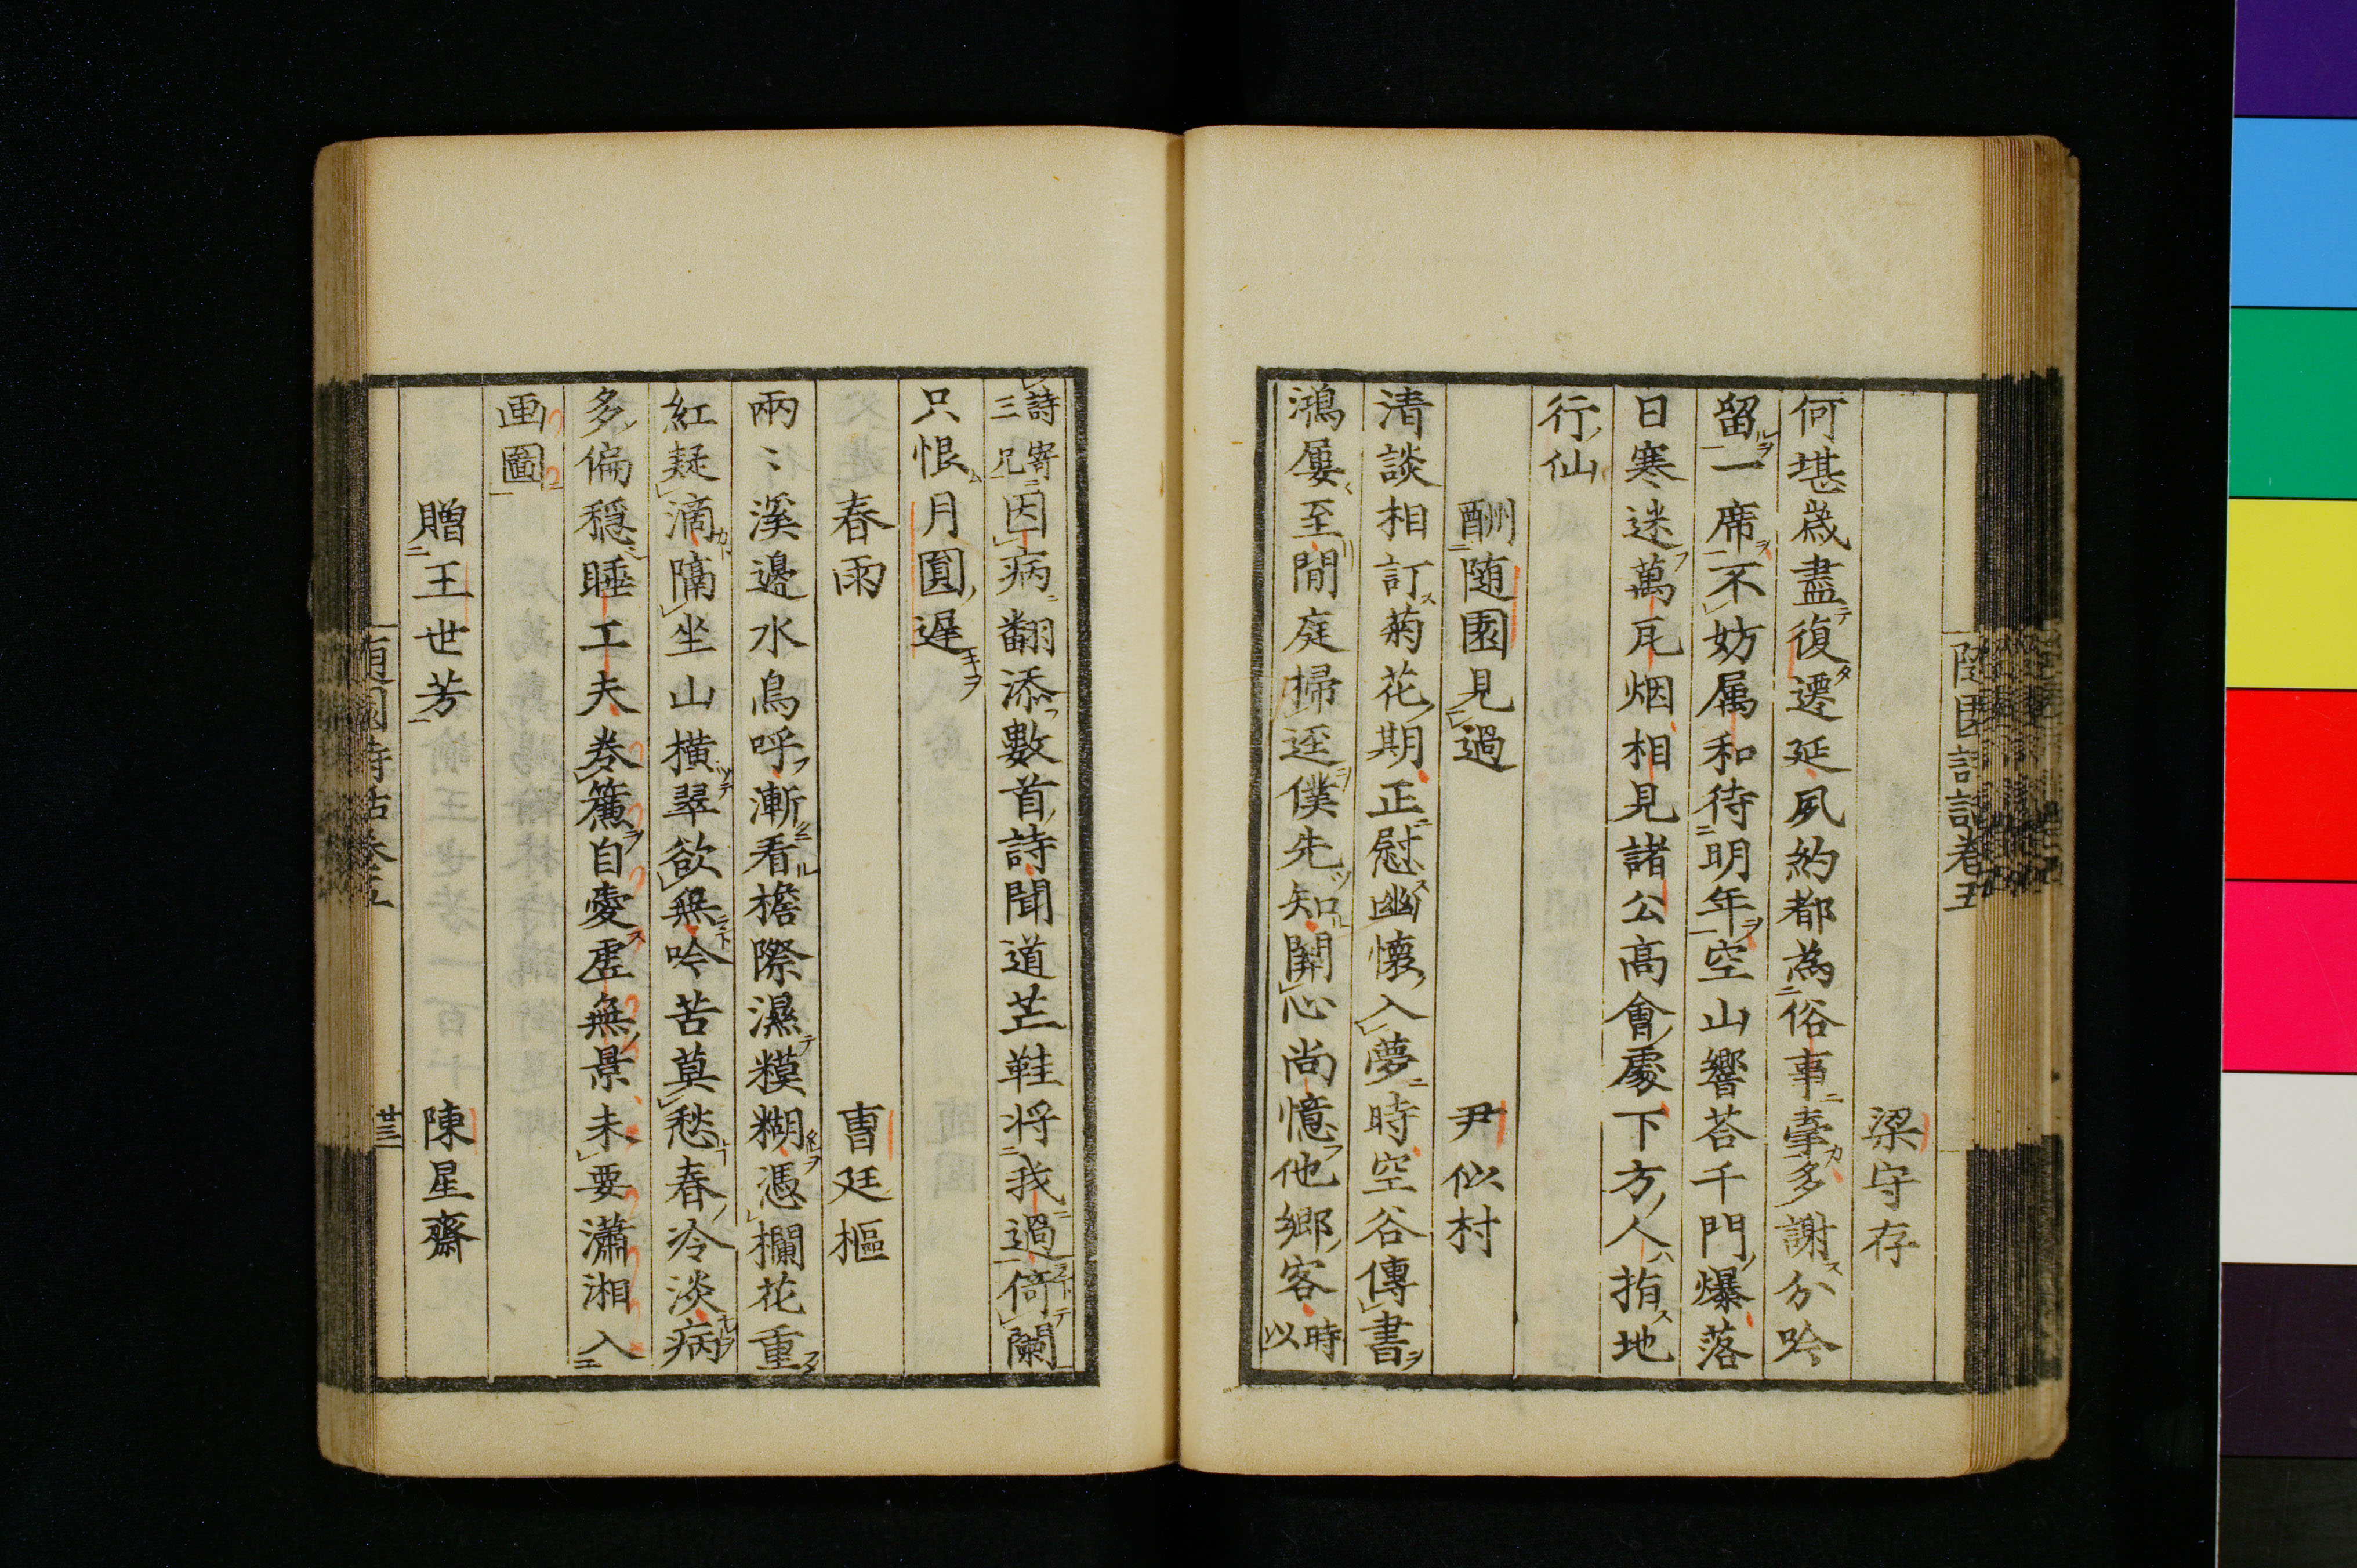 梁守存
何堪歳盡復遷延夙約都為俗事牽多謝分吟
留一席不妨属和待明年空山響荅千門爆落
日寒迷萬瓦烟相見諸公高會處下方人指地
行仙
酬随園見過
尹似村
清談相訂菊花期正慰幽懐入夢時空谷傳書
鴻屢至閒庭掃逕僕先知關心尚憶他郷客時以
詩寄三兄因病翻添數首詩聞道芒鞋将我過倚闌
只恨月圓遅
春雨
曺廷樞
兩〻溪邊水鳥呼漸看檐際濕糢糊憑欄花重
紅疑滴隔坐山橫翠欲無吟苦莫愁春冷淡病
多偏穏睡工夫巻簾自愛虗無景未要瀟湘入
画圖
贈王世芳
陳星齋
随園詩話巻五
廿三